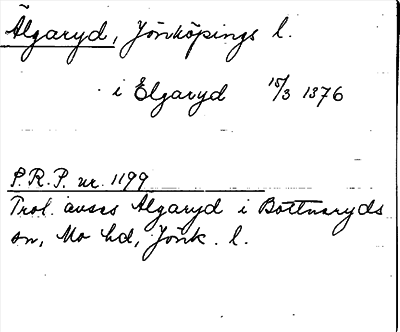 Älgaryd, Jönköpings l.
i Elgaryd 15/3 1376
P.R.P. nr. 1199
Trol. avses Älgaryd i Bottnaryds
sn, Mo hd, Jönk. l.